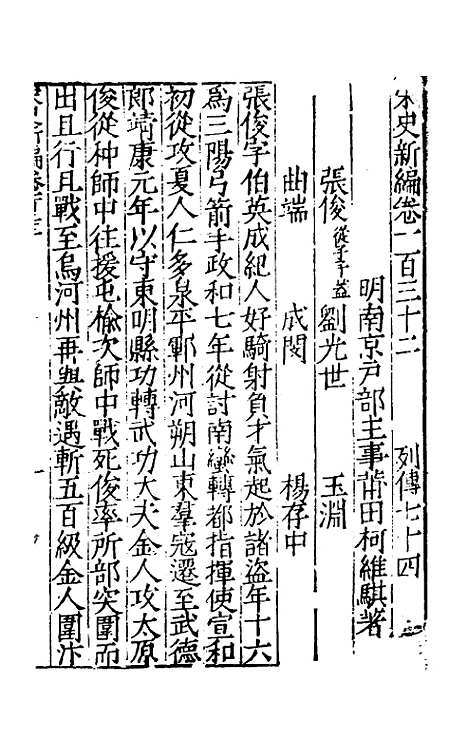 宋史新編卷一百三十二 列傳七十四
明南京戸部主事莆田柯維騏著
張俊 從子子蓋 劉光世 王淵
曲端 成閔 楊存中
張俊字伯英成紀人好騎射負才氣起於諸盜年十六
爲三陽弓箭手政和七年從討南蠻轉都指揮使宣和
初從攻夏人仁多泉平鄆州河朔山東羣寇遷至武德
郎靖康元年以守東明縣功轉武功大夫金人攻太原
俊從种師中往援屯榆次師中戰死俊率所部突圍而
出且行且戰至烏河州再與敵遇斬五百級金人圍汴